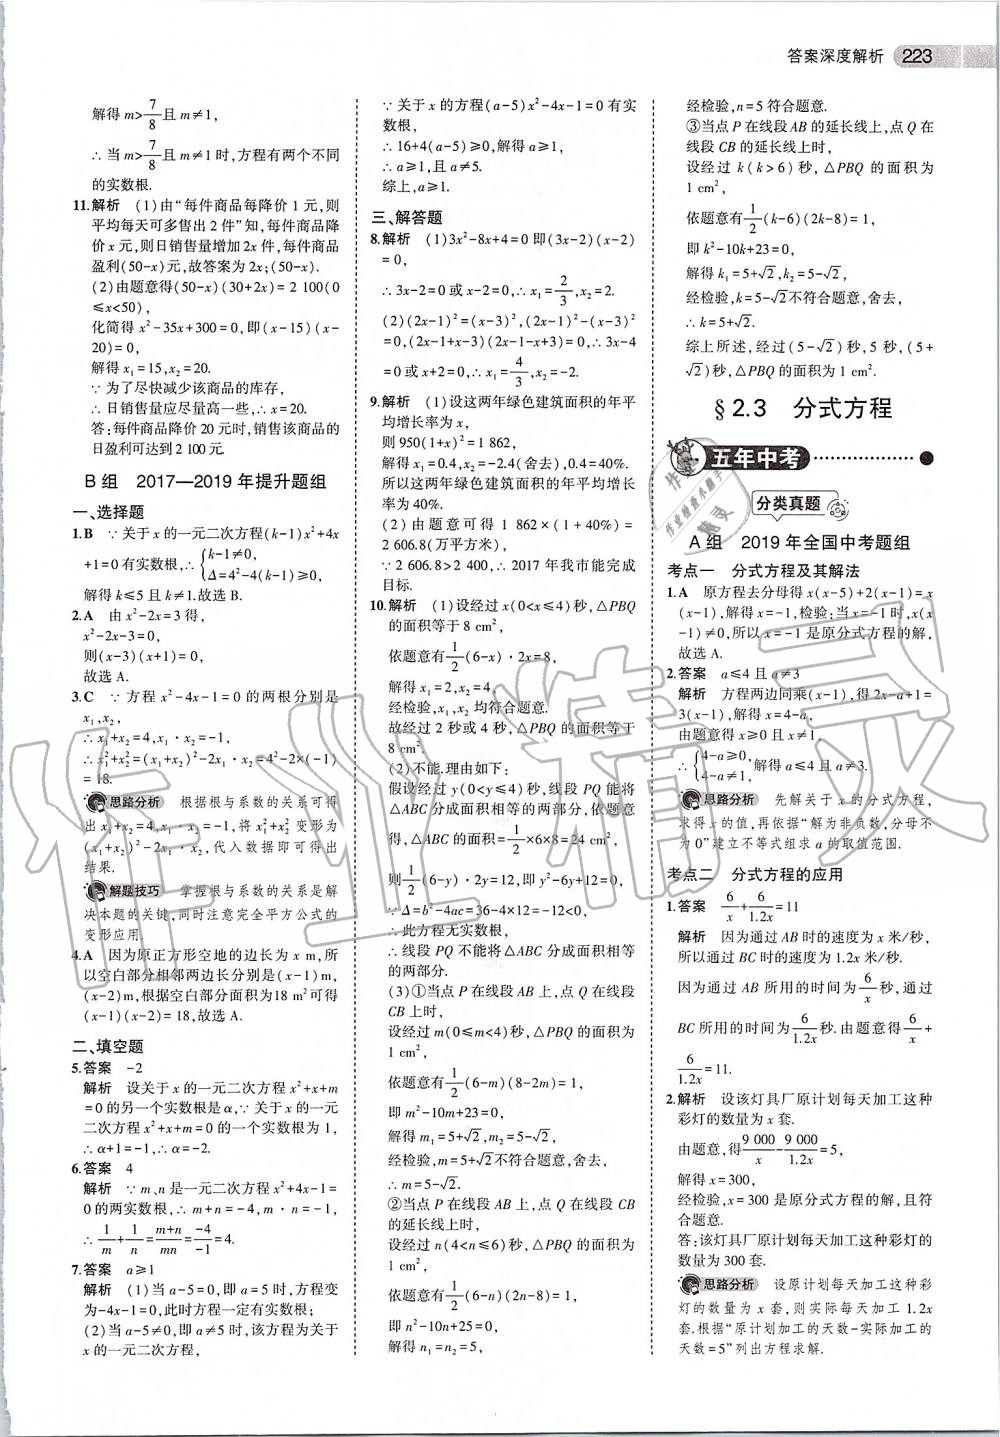 答案深度解析 223
解得 m>7/8且 m≠1,
∴ 当 m>7/8且 m≠1 时,方程有两个不同
的实数根.
11.解析 (1)由“每件商品每降价 1 元,则
平均每天可多售出 2 件”知,每件商品降
价 x 元,则日销售量增加 2x 件,每件商品
盈利(50-x)元,故答案为 2x;(50-x).
(2)由题意得(50-x)(30+2x)=2 100(0
≤x<50),
化简得 x²-35x+300=0,即(x-15)(x-
20)=0,
解得 x₁=15,x₂=20.
∵ 为了尽快减少该商品的库存,
∴ 日销售量应尽量高一些,∴ x=20.
答:每件商品降价 20 元时,销售该商品的
日盈利可达到 2 100 元.
B 组 2017—2019 年提升题组
一、选择题
1.B ∵ 关于 x 的一元二次方程(k-1)x²+4x
+1=0 有实数根,∴ {k-1≠0, Δ=4²-4(k-1)≥0,
解得 k≤5 且 k≠1.故选 B.
2.A 由 x²-2x=3 得,
x²-2x-3=0,
则(x-3)(x+1)=0,
故选 A.
3.C ∵ 方程 x²-4x-1=0 的两根分别是
x₁,x₂,
∴ x₁+x₂=4,x₁·x₂=-1,
∴ x₁²+x₂²=(x₁+x₂)²-2x₁·x₂=4²-2×(-1)
=18.
思路分析 根据根与系数的关系可得
出 x₁+x₂=4,x₁·x₂=-1,将 x₁²+x₂² 变形为
(x₁+x₂)²-2x₁·x₂,代入数据即可得出
结果.
解题技巧 掌握根与系数的关系是解
决本题的关键,同时注意完全平方公式的
变形应用.
4.A 因为原正方形空地的边长为 x m,所
以空白部分相邻两边长分别是(x-1)m,
(x-2)m,根据空白部分面积为18 m²可得
(x-1)(x-2)=18,故选 A.
二、填空题
5.答案 -2
解析 设关于 x 的一元二次方程 x²+x+m
=0 的另一个实数根是 α,∵ 关于 x 的一元
二次方程 x²+x+m=0 的一个实数根为 1,
∴ α+1=-1,∴ α=-2.
6.答案 4
解析 ∵ m、n 是一元二次方程 x²+4x-1=
0 的两实数根,∴ m+n=-4,mn=-1,
∴ 1/m+1/n=(m+n)/mn=-4/-1=4.
7.答案 a≥1
解析 (1)当 a-5=0,即 a=5 时,方程变
为-4x-1=0,此时方程一定有实数根;
(2)当 a-5≠0,即 a≠5 时,该方程为关于
x 的一元二次方程,
∵ 关于 x 的方程(a-5)x²-4x-1=0 有实
数根,
∴ 16+4(a-5)≥0,解得 a≥1,
∴ a≥1,且 a≠5.
综上,a≥1.
三、解答题
8.解析 (1)3x²-8x+4=0 即(3x-2)(x-2)
=0,
∴ 3x-2=0 或 x-2=0,∴ x₁=2/3,x₂=2.
(2)(2x-1)²=(x-3)²,(2x-1)²-(x-3)²
=0,(2x-1+x-3)(2x-1-x+3)=0,∴ 3x-4
=0 或 x+2=0,∴ x₁=4/3,x₂=-2.
9.解析 (1)设这两年绿色建筑面积的年平
均增长率为 x,
则 950(1+x)²=1 862,
解得 x₁=0.4,x₂=-2.4(舍去),0.4=40%.
所以这两年绿色建筑面积的年平均增长率
为 40%.
(2)由题意可得 1 862×(1+40%)=
2 606.8(万平方米),
∵ 2 606.8>2 400,∴ 2017 年我市能完成
目标.
10.解析 (1)设经过 x(0<x≤4)秒,△PBQ
的面积等于 8 cm²,
依题意有1/2(6-x)·2x=8,
解得 x₁=2,x₂=4,
经检验,x₁,x₂ 均符合题意.
故经过 2 秒或 4 秒,△PBQ 的面积等于
8 cm².
(2)不能.理由如下:
假设经过 y(0<y≤4)秒,线段 PQ 能将
△ABC 分成面积相等的两部分,依题意
得,△ABC 的面积=1/2×6×8=24 cm²,
则1/2(6-y)·2y=12,即 y²-6y+12=0,
∵ Δ=b²-4ac=36-4×12=-12<0,
∴ 此方程无实数根,
∴ 线段 PQ 不能将△ABC 分成面积相等
的两部分.
(3)①当点 P 在线段 AB 上,点 Q 在线段
CB 上时,
设经过 m(0≤m<4)秒,△PBQ 的面积为
1 cm²,
依题意有1/2(6-m)(8-2m)=1,
即 m²-10m+23=0,
解得 m₁=5+√2,m₂=5-√2,
经检验,m=5+√2不符合题意,舍去,
∴ m=5-√2.
②当点 P 在线段 AB 上,点 Q 在线段 CB
的延长线上时,
设经过 n(4<n≤6)秒,△PBQ 的面积为
1 cm²,
依题意有1/2(6-n)(2n-8)=1,
即 n²-10n+25=0,
解得 n₁=n₂=5,
经检验,n=5 符合题意.
③当点 P 在线段 AB 的延长线上,点 Q 在
线段 CB 的延长线上时,
设经过 k(k>6)秒,△PBQ 的面积为
1 cm²,
依题意有1/2(k-6)(2k-8)=1,
即 k²-10k+23=0,
解得 k₁=5+√2,k₂=5-√2,
经检验,k=5-√2不符合题意,舍去,
∴ k=5+√2.
综上所述,经过(5-√2)秒,5 秒,(5+
√2)秒,△PBQ 的面积为 1 cm².
§2.3 分式方程
五年中考
分类真题
A 组 2019 年全国中考题组
考点一 分式方程及其解法
1.A 原方程去分母得 x(x-5)+2(x-1)=x
(x-1),解得 x=-1,检验:当 x=-1 时,x(x
-1)≠0,所以 x=-1 是原分式方程的解,
故选 A.
2.答案 a≤4 且 a≠3
解析 方程两边同乘(x-1),得 2x-a+1=
3(x-1),解得 x=4-a,
由题意得 x≥0 且 x≠1,
∴ {4-a≥0, 4-a≠1, 解得 a≤4 且 a≠3.
思路分析 先解关于 x 的分式方程,
求得 x 的值,再依据“解为非负数,分母不
为 0”建立不等式组求 a 的取值范围.
考点二 分式方程的应用
1.答案 6/x+6/1.2x=11
解析 因为通过 AB 时的速度为 x 米/秒,
所以通过 BC 时的速度为 1.2x 米/秒.
因为通过 AB 所用的时间为6/x秒,通过
BC 所用的时间为6/1.2x秒.由题意得6/x+
6/1.2x=11.
2.解析 设该灯具厂原计划每天加工这种
彩灯的数量为 x 套.
由题意,得9 000/x-9 000/1.2x=5,
解得 x=300,
经检验,x=300 是原分式方程的解,且符
合题意.
答:该灯具厂原计划每天加工这种彩灯的
数量为 300 套.
思路分析 设原计划每天加工这种彩
灯的数量为 x 套,则实际每天加工 1.2x
套.根据“原计划加工的天数-实际加工的
天数=5”列出方程求解.
作业精灵